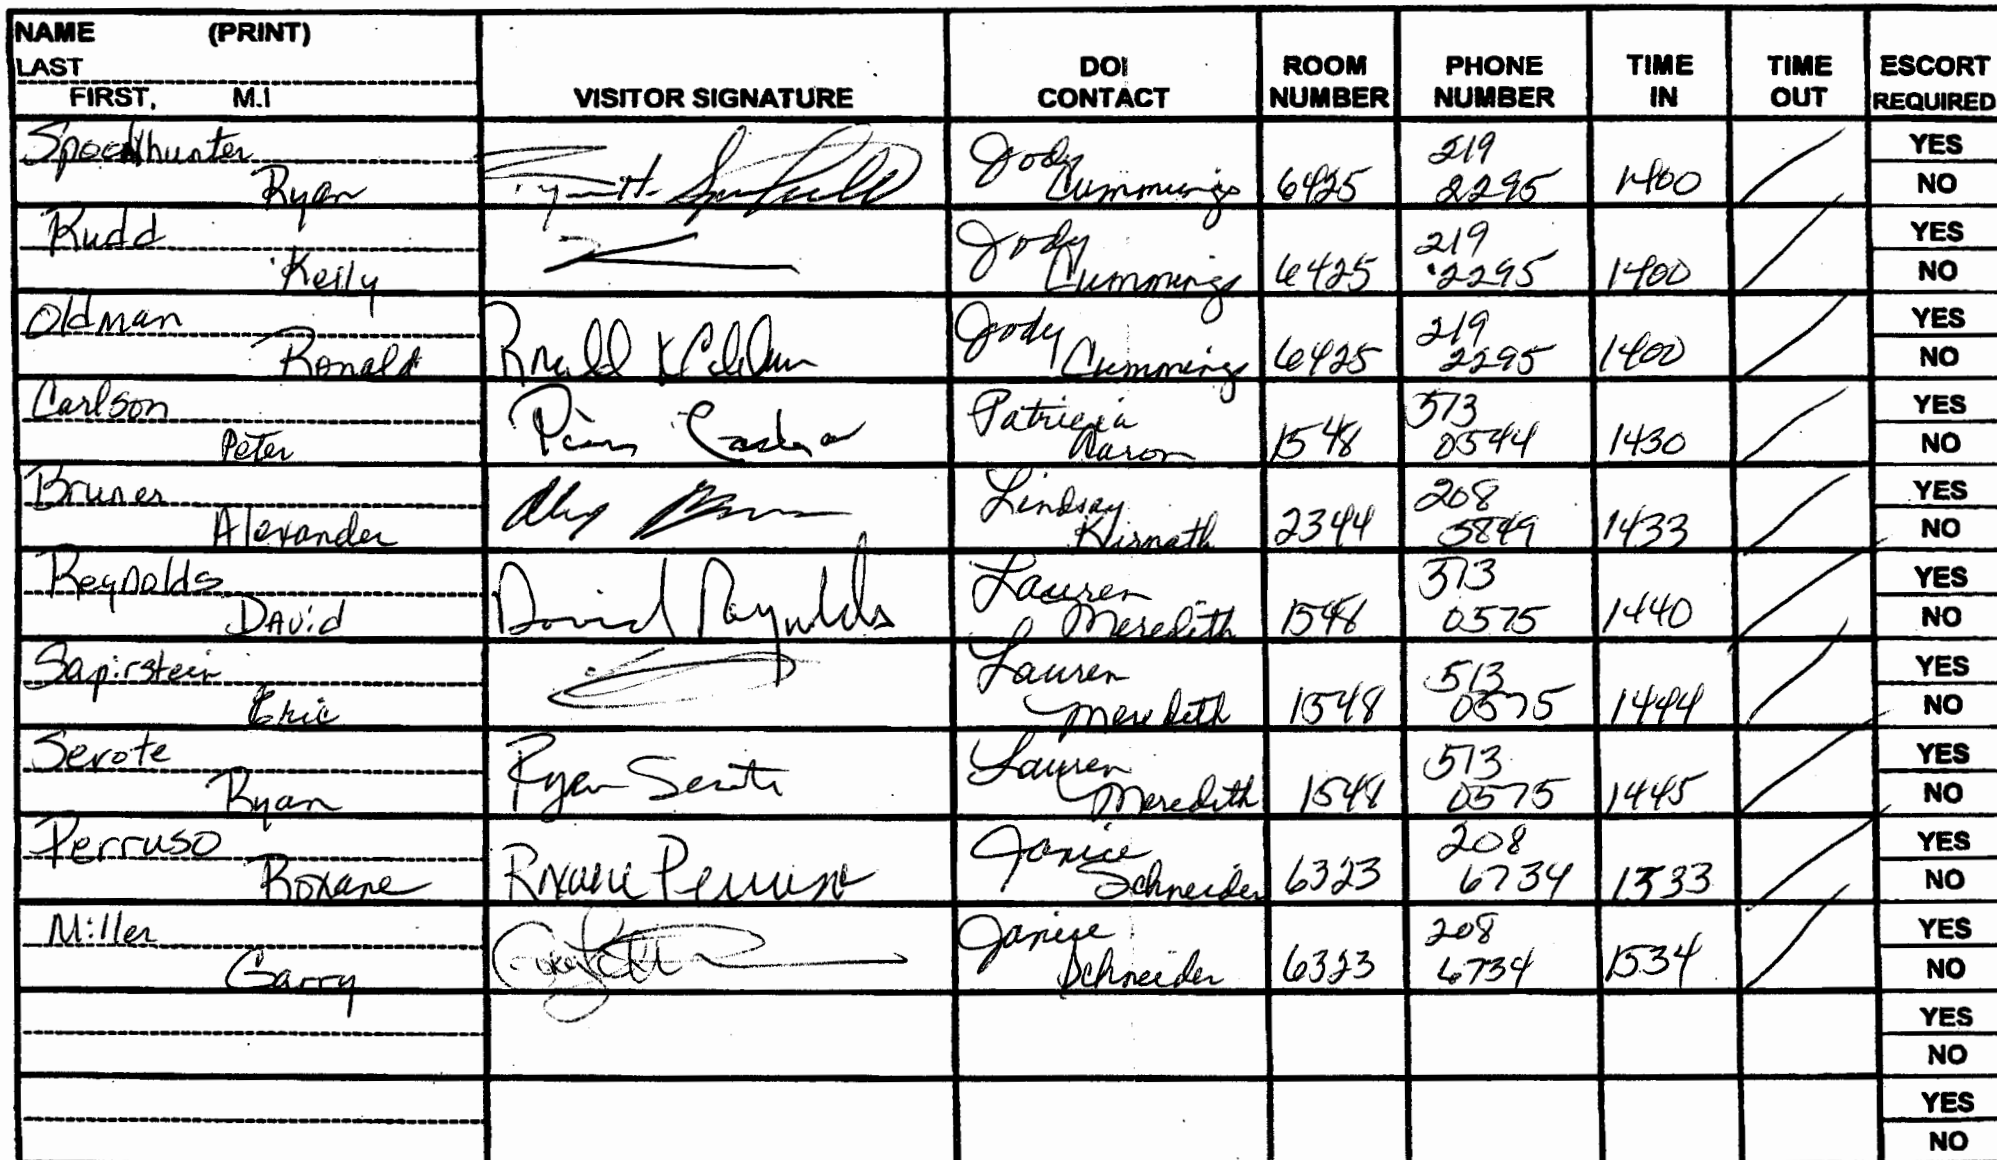 NAME (PRINT)
LAST
FIRST, M.I
VISITOR SIGNATURE
DOI CONTACT
ROOM NUMBER
PHONE NUMBER
TIME IN
TIME OUT
ESCORT REQUIRED
Spoonhunter
Ryan
Jody Cummings
6425
219 2295
1400
YES
NO
Rudd
Kelly
Jody Cummings
6425
219 2295
1400
YES
NO
Oldman
Ronald
Jody Cummings
6425
219 2295
1400
YES
NO
Carlson
Peter
Patricia Aaron
1548
513 0544
1430
YES
NO
Bruner
Alexander
Lindsay
2344
208 5849
1433
YES
NO
Reynolds
David
David Reynolds
Lauren Meredith
1548
513 0575
1440
YES
NO
Sapirstein
Eric
Lauren Meredith
1548
513 0575
1444
YES
NO
Serote
Ryan
Ryan Serote
Lauren Meredith
1548
513 0575
1445
YES
NO
Perruso
Roxane
Roxane Perruso
Janice Schneider
6323
208 6734
1533
YES
NO
Miller
Garry
Janice Schneider
6323
208 6734
1534
YES
NO
YES
NO
YES
NO